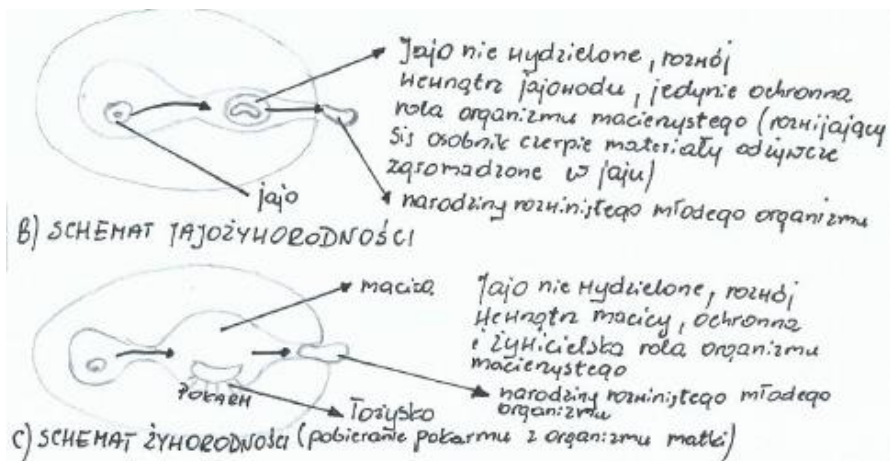 Jajo nie wydzielone, rozwój
wewnątrz jajowodu, jedynie ochronna
rola organizmu macierzystego (rozwijający
sis osobnik czerpie materiały odżywcze
zgromadzone w jaju)
jajo
narodziny rozwiniętego młodego organizmu
B) SCHEMAT JAJOŻYWORODNOŚCI
macica
Jajo nie wydzielone, rozwój
wewnątrz macicy, ochronna
i żywicielska rola organizmu
macierzystego
narodziny rozwiniętego młodego
organizmu
POKARM
łożysko
C) SCHEMAT ŻYWORODNOŚCI (pobieranie pokarmu z organizmu matki)